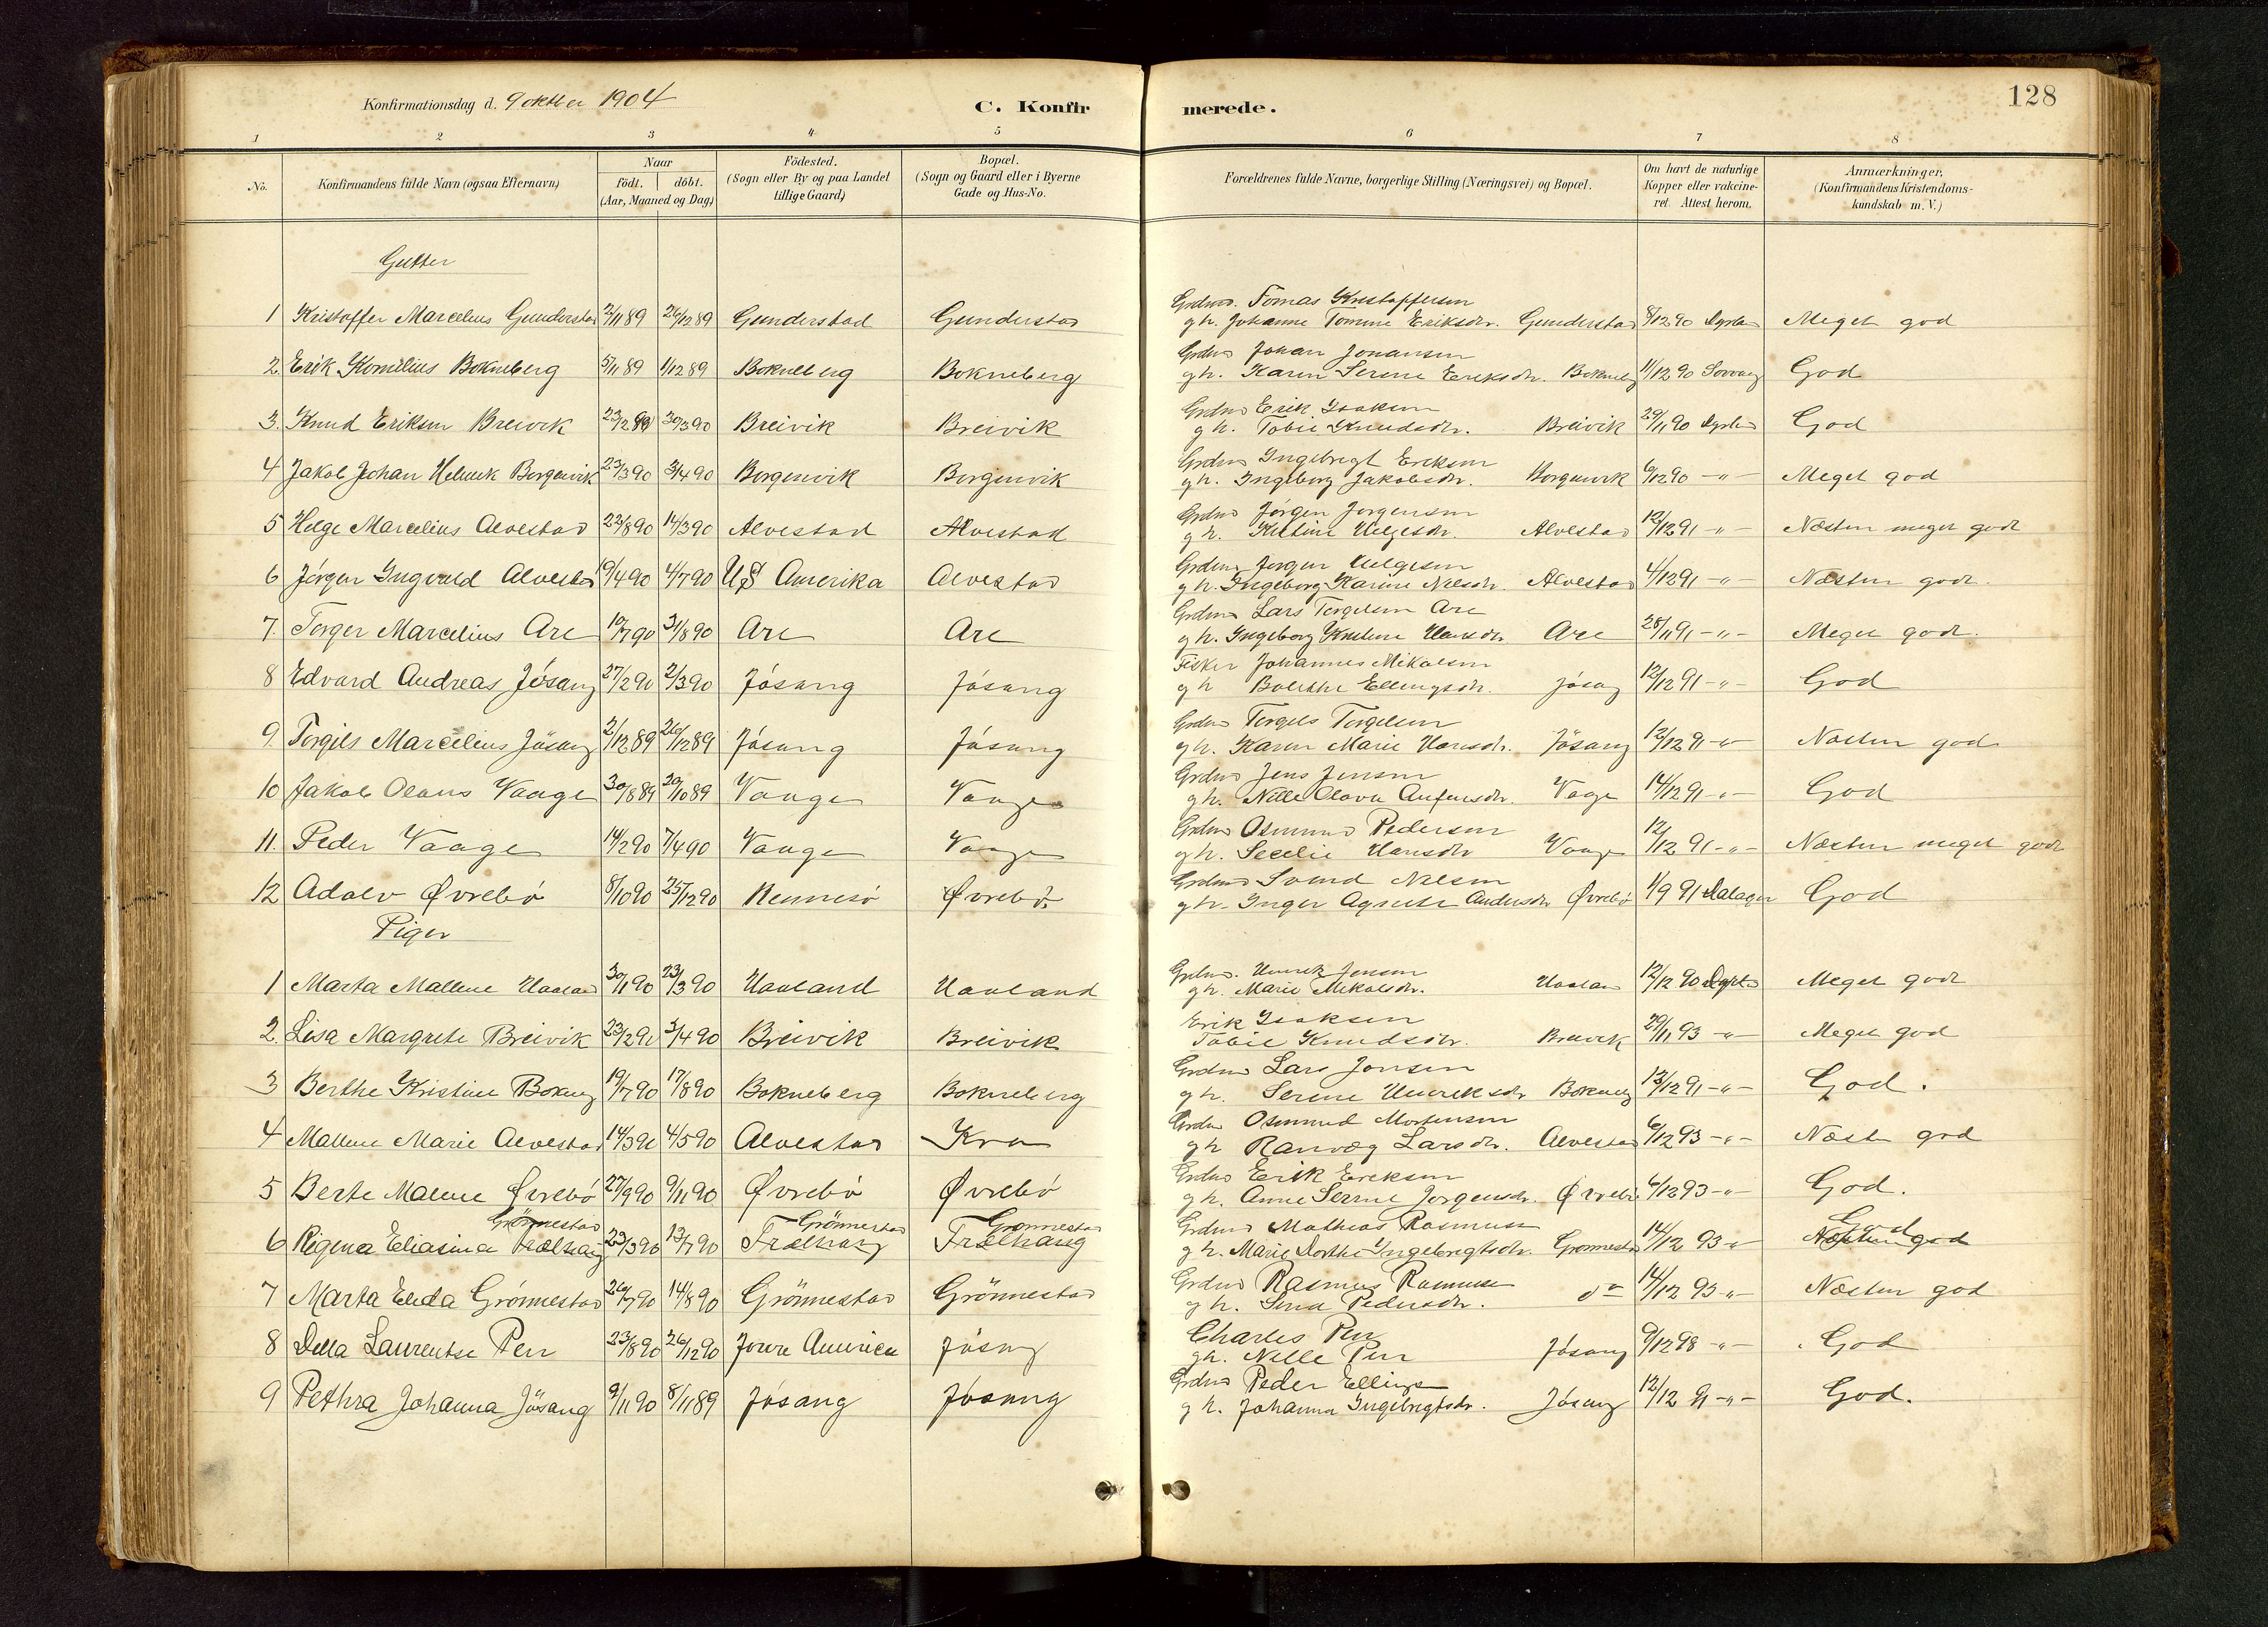 Konfirmationsdag d. 9 oktber 1904
C. Konfirmerede.
128
1 2 3 4 5 6 7 8
No. | Konfirmandens fulde Navn (ogsaa Efternavn) | Naar födt. | döbt. (Aar, Maaned og Dag) | Födested. (Sogn eller By og paa Landet tillige Gaard) | Bopæl. (Sogn og Gaard eller i Byerne Gade og Hus-No. | Forældrenes fulde Navne, borgerlige Stilling (Næringsvei) og Bopæl. | Om havt de naturlige Kopper eller vakcineret. Attest herom. | Anmærkninger. (Konfirmandens Kristendomskundskab m. V.)
Gutter
1 Kristoffer Marcelius Gunderstad 2/11 89 26/12 89 Gunderstad Gunderstad Grdm. Tomas Kristoffersen gh. Johanne Tomine Eriksdr. Gunderstad 8/12 90 Meget god
2. Erik Kornelius Bokneberg 5/11 89 1/12 89 Bokneberg Bokneberg Grdm Johan Johansen gh. Karen Serene Eriksdr. Bokneberg 11/12 90 God
3. Knud Eriksen Breivik 23/12 89 30/3 90 Breivik Breivik Grdm Erik Isaksen gh. Tobie Knudsdr. Breivik 29/11 90 God
4 Jakob Johan Helmik Borgenvik 23/3 90 3/4 90 Borgenvik Borgenvik Grdm Ingebregt Eriksen gh. Ingeborg Jakobsdr. Borgenvik 6/12 90 -"- Meget god
5 Helge Marcelius Alvestad 22/8 90 14/3 90 Alvestad Alvestad Grdm Jørgen Jørgensen gh. Kristine Helgesdr. Alvestad 12/12 91 -"- Næsten meget godt
6 Jørgen Ingvald Alvestad 19/4 90 4/7 90 US Amerika Alvestad Grdm Jørgen Helgesen gh. Ingeborg Karine Nilsdr. Alvestad 4/12 91 -"- Næsten godt
7. Torger Marcelius Are 10/7 90 31/8 90 Are Are Grdm Lars Torgersen Are gh. Ingeborg Kristine Hansdr. Are 28/11 91 -"- Meget godt.
8 Edvard Andreas Jösang 27/2 90 2/3 90 Jösang Jösang Fisker Johannes Mikalsen gh Bolethe Ellingsdr. Jösang 12/12 91 -"- God
9. Torgils Marcelius Jösang 2/12 89 26/12 89 Jösang Jösang Grdm Torgils Torgilsen gh. Karen Marie Hansdr. Jösang 12/12 91 -"- Næsten god
10 Jakob Olaus Vaage 30/8 89 20/10 89 Vaage Vaage Grdm Jens Jensen gh. Nille Olava Vage 14/12 91 -"- God
11. Peder Vaage 14/2 90 7/4 90 Vaage Vaage Grdm Osmund Pedersen gh. Secelie Hansdr Vaage 12/12 91 -"- Næsten meget godt
12 Adolv Øvrebö 8/10 90 25/12 90 Rennesö Øvrebö. Grdm Svend Nilsen gh. Inger Agnethe Andersdr Øvrebö 1/9 91 God
Piger
1 Marta Mallene Haaland 30/1 90 23/3 90 Haaland Haaland Grdm. Henrik Jensen gh. Marie Mikalsdr. Haaland 12/12 90 Meget godt
2. Lisa Margrete Breivik 23/2 90 3/4 90 Breivik Breivik Erik Isaksen Tobie Knudsdr. Breivik 29/11 93 -"- Meget god
3 Berthe Kristine Bokneberg 19/7 90 17/8 90 Bokneberg Bokneberg Grdm Lars Jonsen gh. Serene Henriksdr Bokneberg 13/12 91 -"- God.
4 Mallene Marie Alvestad 14/3 90 4/5 90 Alvestad Kro Grdm Osmund Mortensen gh Ranvæg Larsdr. Alvestad 6/12 93 -"- Næst god
5 Berte Malene Øvrebö 27/9 90 9/11 90 Øvrebö Øvrebö Grdm Erik Eriksen gh. Anne Serine Jorgensdr. Øvrebö 6/12 93 -"- God.
6 Regina Eliasina Trælhaug Grönnestad 23/3 90 13/7 90 Trælhaug Grönnestad Trælhaug Grönnestad Grdm Mathias Rasmussen gh. Marie Dorthe Ingebregtsdr. Grönnestad 14/12 93 -"- God Næsten god
7 Marta Elida Grönnestad 26/7 90 14/8 90 Grönnestad Grönnestad Grdm Rasmus Rasmussen gh. Sina Pedersdr. do 14/12 93 -"- Næsten god
8 Della Laurentse Pen 23/8 90 26/12 90 Jowe America Jösang Charles Pen gh. Nille Pen Jösang 9/12 98 -"- God
9 Pethra Johanna Jösang 9/11 90 8/11 89 Jösang Jösang Grdm Peder Ellings gh. Johanna Ingebregtsdr. Jösang 12/12 91 -"- God.